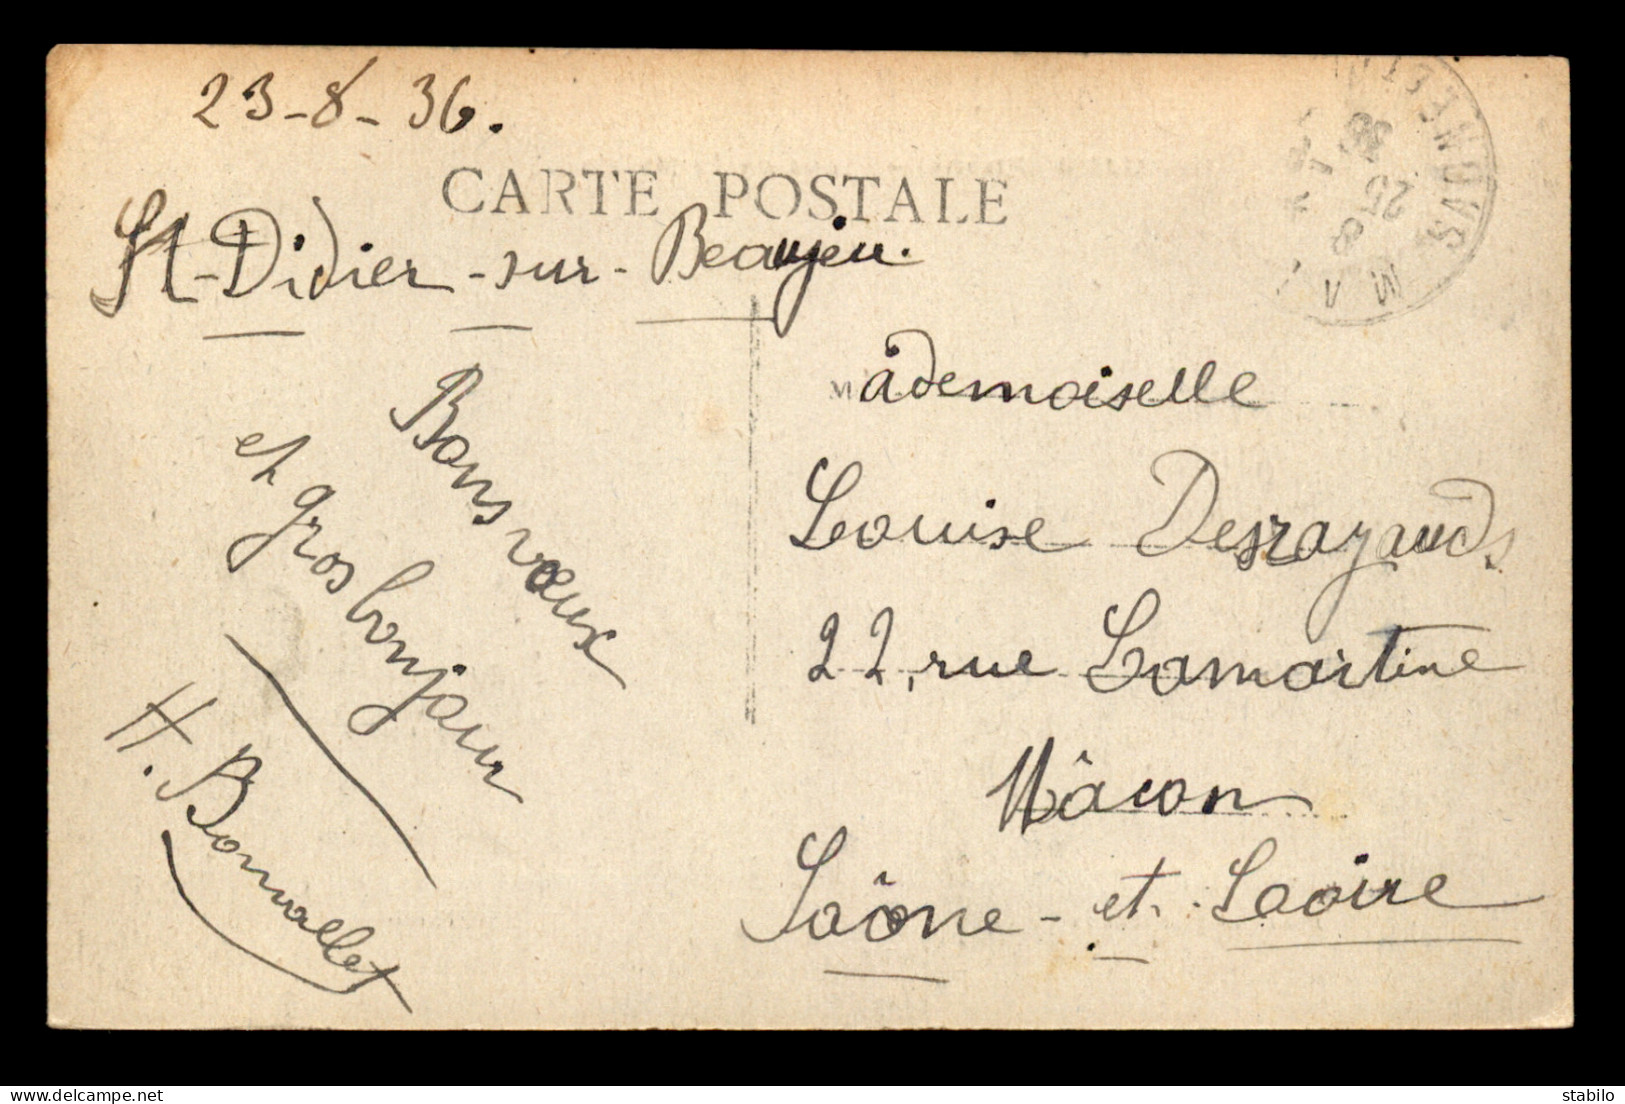 23-8-36.
CARTE POSTALE
St-Didier-sur-Beaujeu.
Bons vœux
et gros bonjour
H. Bonvallet
Mademoiselle
Louise Desrayauds
22, rue Lamartine
Mâcon
Saône-et-Loire
25-8
36
delcampe.net
stabilo